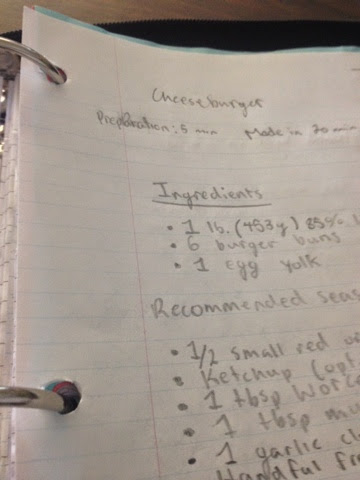 Cheeseburger
Preparation: 5 min Made in 20 min
Ingredients
• 1 lb. (453g) 85%
• 6 burger buns
• 1 egg yolk
Recommended seas
• 1/2 small red
• Ketchup (opt
• 1 tbsp Worc
• 1 tbsp
• 1 garlic cl
Handful fr